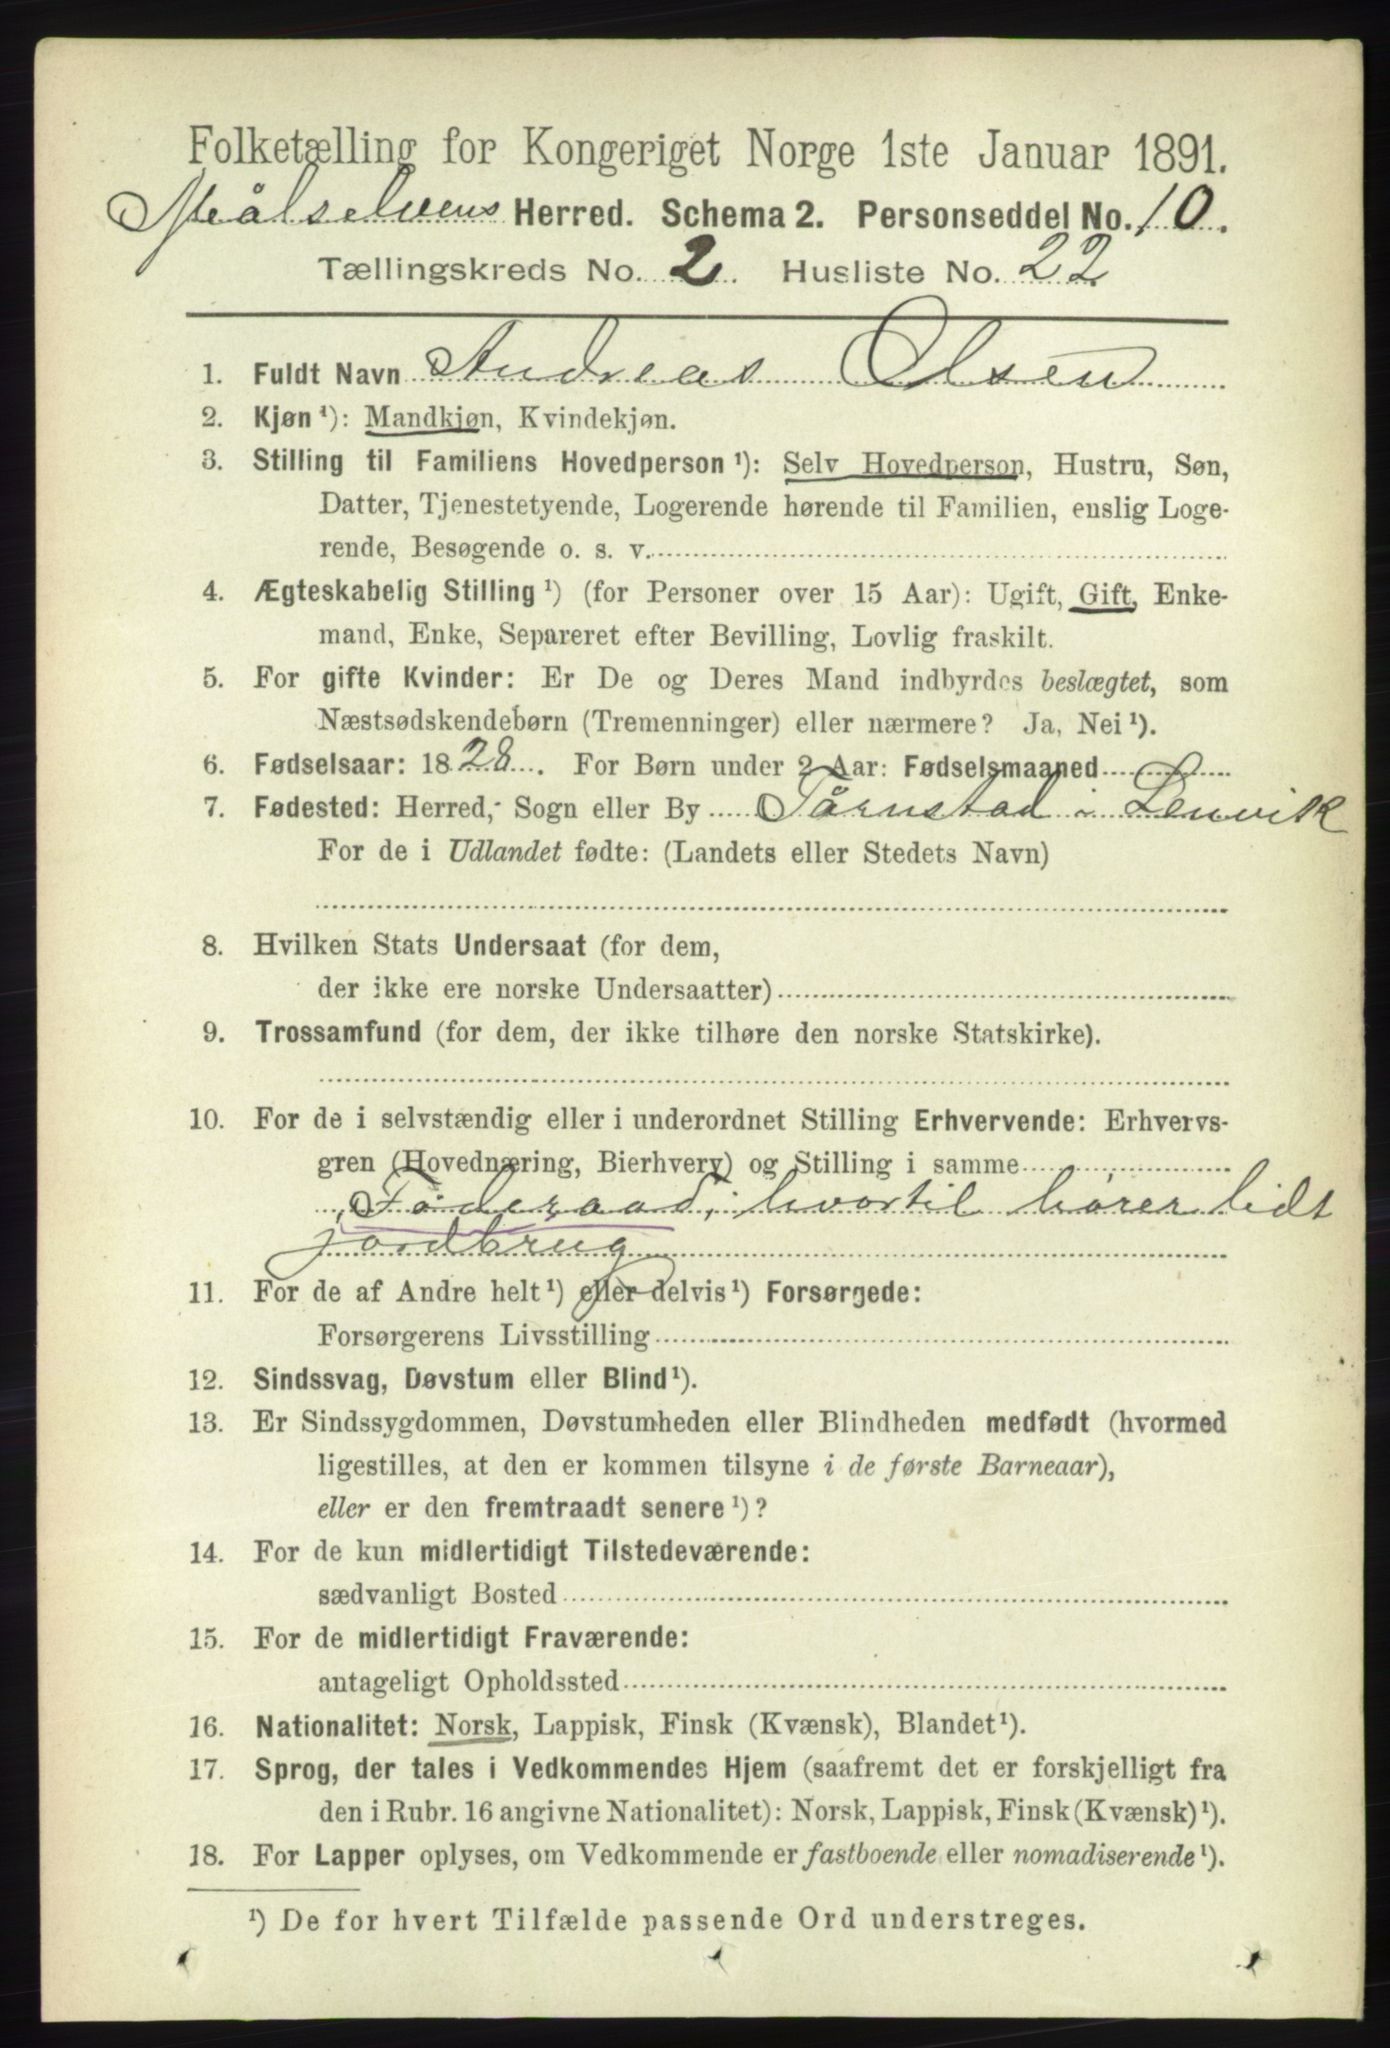 Folketælling for Kongeriget Norge 1ste Januar 1891.
Målselvens Herred. Schema 2. Personseddel No. 10.
Tællingskreds No. 2. Husliste No. 22
1. Fuldt Navn Andreas Olsen
2. Kjøn ¹): Mandkjøn, Kvindekjøn.
3. Stilling til Familiens Hovedperson ¹): Selv Hovedperson, Hustru, Søn,
Datter, Tjenestetyende, Logerende hørende til Familien, enslig Loge-
rende, Besøgende o. s. v.
4. Ægteskabelig Stilling ¹) (for Personer over 15 Aar): Ugift, Gift, Enke-
mand, Enke, Separeret efter Bevilling, Lovlig fraskilt.
5. For gifte Kvinder: Er De og Deres Mand indbyrdes beslægtet, som
Næstsødskendebørn (Tremenninger) eller nærmere? Ja, Nei ¹).
6. Fødselsaar: 1828. For Børn under 2 Aar: Fødselsmaaned
7. Fødested: Herred, Sogn eller By Tårnstad i Lenvik
For de i Udlandet fødte: (Landets eller Stedets Navn)
8. Hvilken Stats Undersaat (for dem,
der ikke ere norske Undersaatter)
9. Trossamfund (for dem, der ikke tilhøre den norske Statskirke).
10. For de i selvstændig eller i underordnet Stilling Erhvervende: Erhvervs-
gren (Hovednæring, Bierhverv) og Stilling i samme
Føderaad, hvortil hører lidt
jordbrug
11. For de af Andre helt ¹) eller delvis ¹) Forsørgede:
Forsørgerens Livsstilling
12. Sindssvag, Døvstum eller Blind ¹).
13. Er Sindssygdommen, Døvstumheden eller Blindheden medfødt (hvormed
ligestilles, at den er kommen tilsyne i de første Barneaar),
eller er den fremtraadt senere ¹)?
14. For de kun midlertidigt Tilstedeværende:
sædvanligt Bosted
15. For de midlertidigt Fraværende:
antageligt Opholdssted
16. Nationalitet: Norsk, Lappisk, Finsk (Kvænsk), Blandet ¹).
17. Sprog, der tales i Vedkommendes Hjem (saafremt det er forskjelligt fra
den i Rubr. 16 angivne Nationalitet): Norsk, Lappisk, Finsk (Kvænsk) ¹).
18. For Lapper oplyses, om Vedkommende er fastboende eller nomadiserende ¹).
¹) De for hvert Tilfælde passende Ord understreges.